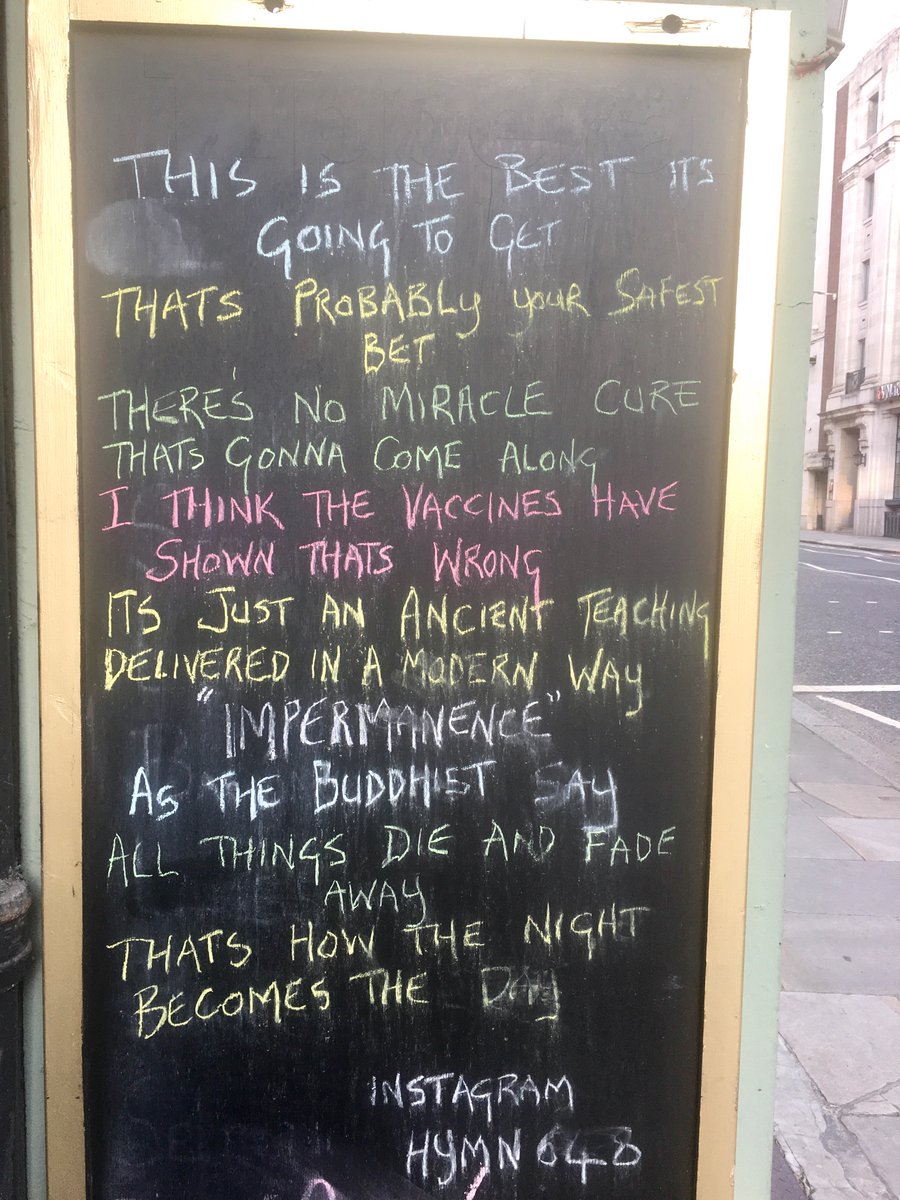 THIS IS THE BEST ITS
GOING TO GET
THATS PROBABLY YOUR SAFEST
BET
THERE'S NO MIRACLE CURE
THATS GONNA COME ALONG
I THINK THE VACCINES HAVE
SHOWN THATS WRONG
ITS JUST AN ANCIENT TEACHING
DELIVERED IN A MODERN WAY
"IMPERMANENCE"
AS THE BUDDHIST SAY
ALL THINGS DIE AND FADE
AWAY
THATS HOW THE NIGHT
BECOMES THE DAY
INSTAGRAM
HYMN 648